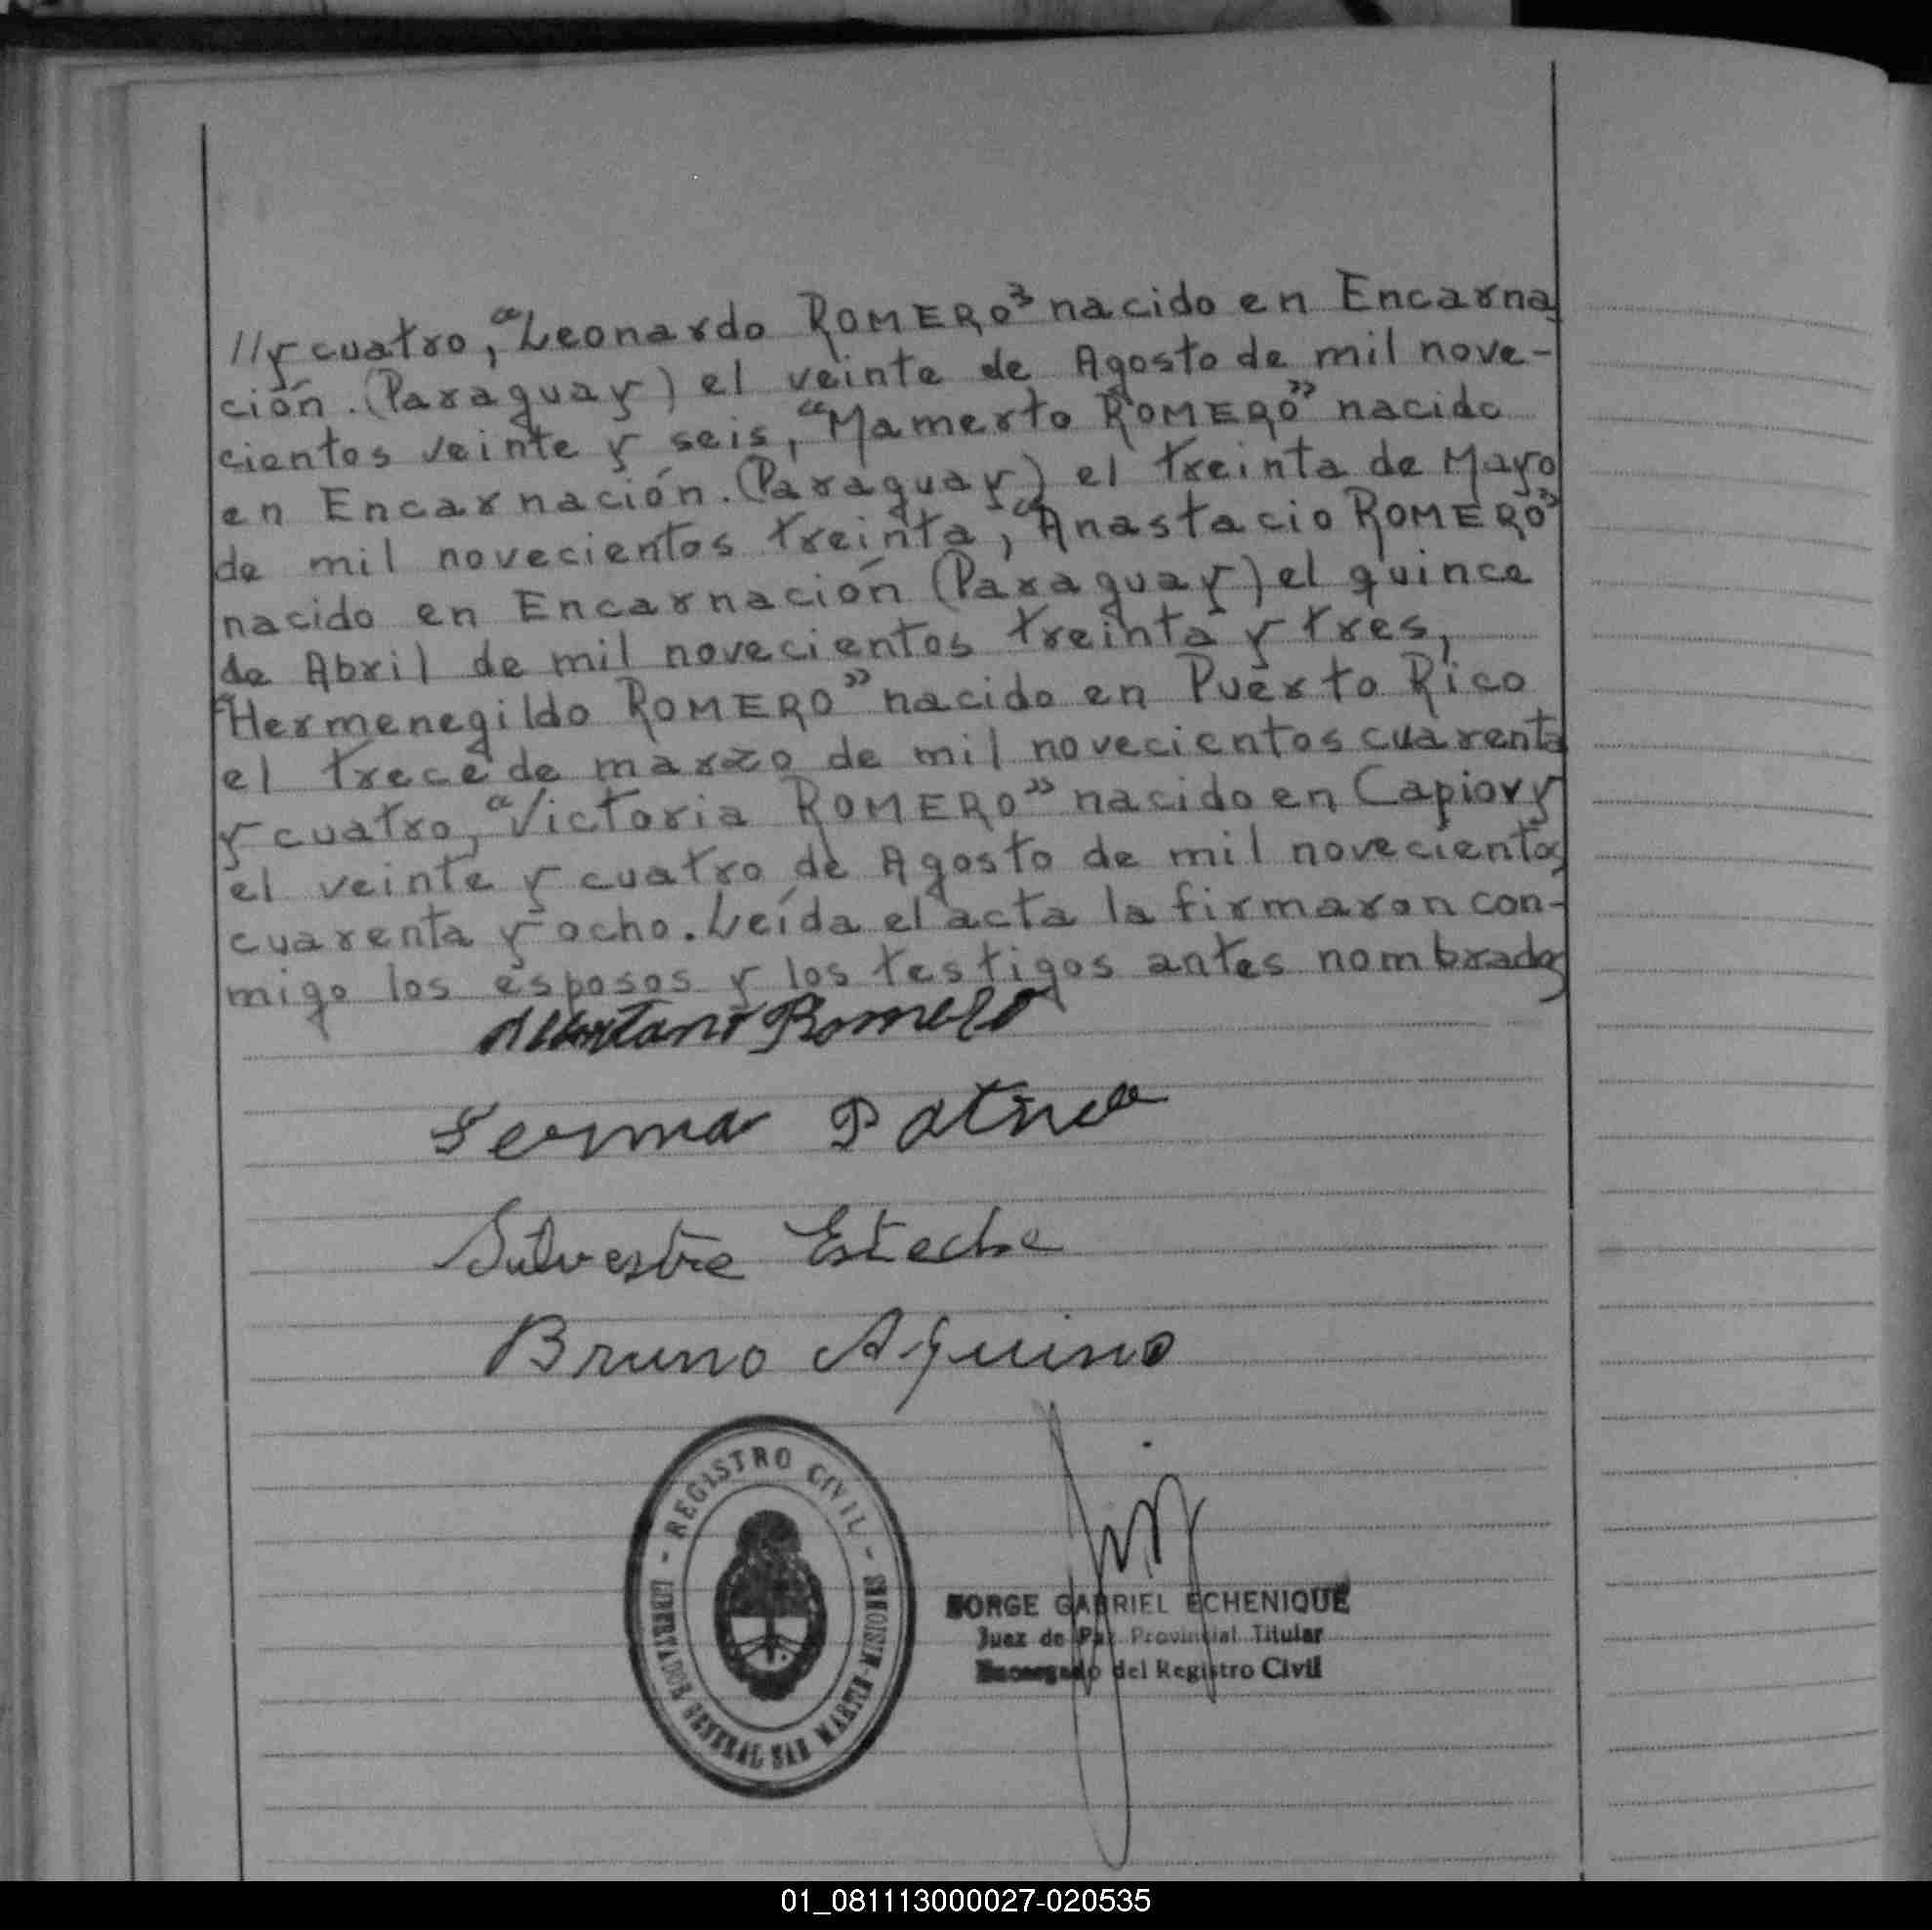 //y cuatro, "Leonardo ROMERO" nacido en Encarna
ción. (Paraguay) el veinte de Agosto de mil nove-
cientos veinte y seis, "Mamerto ROMERO" nacido
en Encarnación. (Paraguay) el treinta de Mayo
de mil novecientos treinta, "Anastacio ROMERO"
nacido en Encarnación (Paraguay) el quince
de Abril de mil novecientos treinta y tres,
"Hermenegildo ROMERO" nacido en Puerto Rico
el trece de marzo de mil novecientos cuarenta
y cuatro, "Victoria ROMERO" nacido en Capiovy
el veinte y cuatro de Agosto de mil novecientos
cuarenta y ocho. Leída el acta la firmaron con-
migo los esposos y los testigos antes nombrados
Romero
Silvestre Esteche
Bruno Aquino
REGISTRO CIVIL - LIBERTADOR GENERAL SAN MARTIN-MISIONES -
JORGE GABRIEL ECHENIQUE
Juez de Paz Provincial Titular
Encargado del Registro Civil
01_081113000027-020535